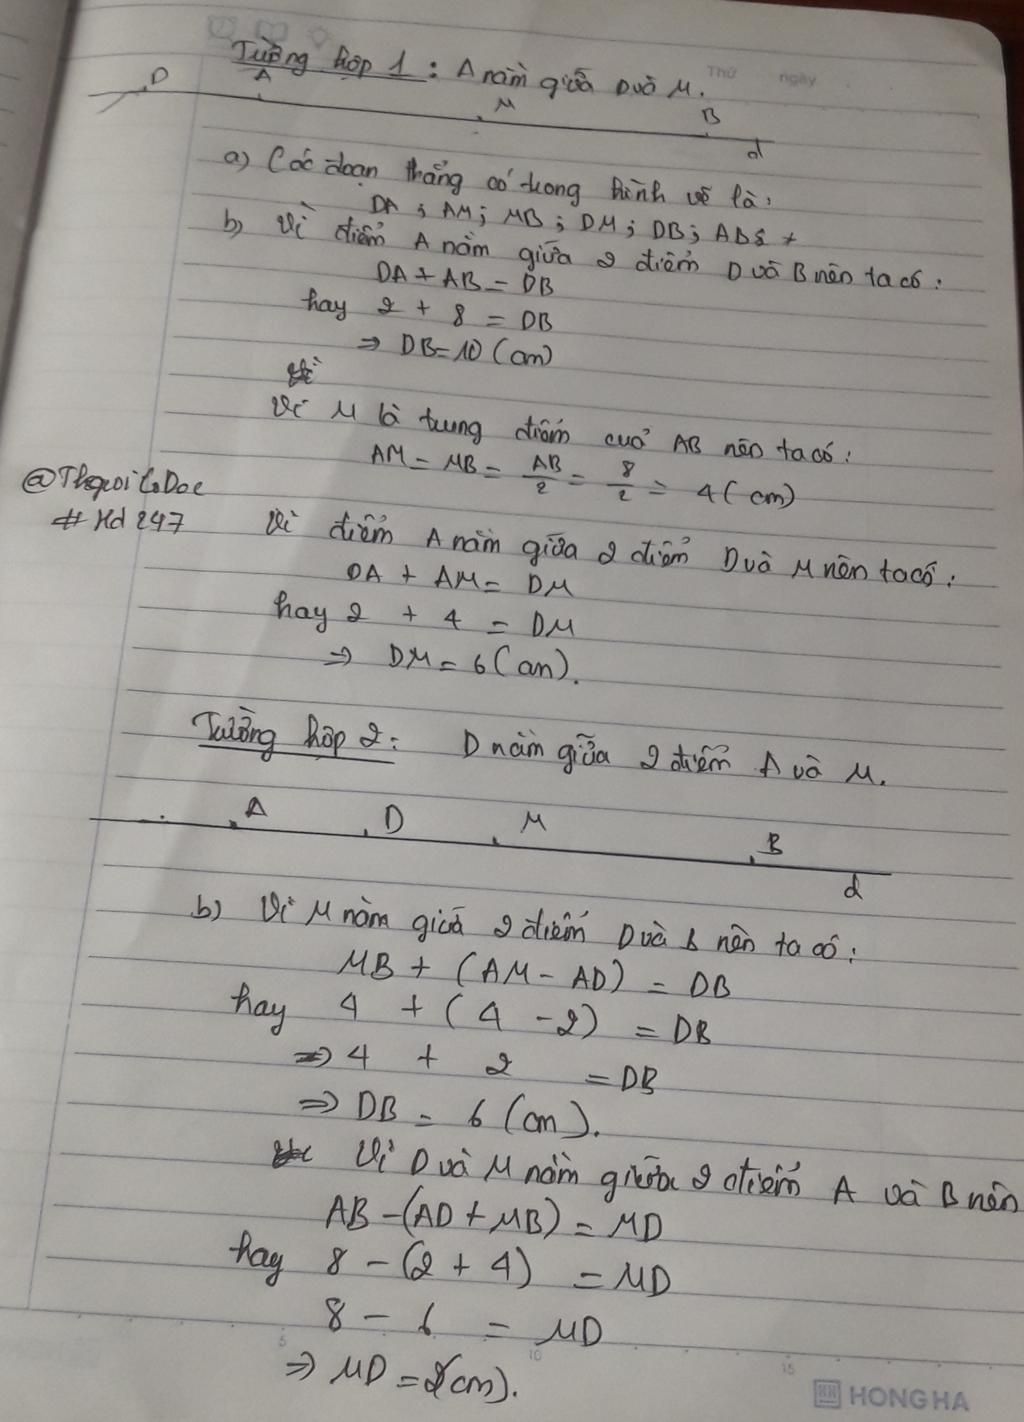 Trường hợp 1: A nằm giữa D và M.
Thứ ngày
D A M B d
a) Các đoạn thẳng có trong hình vẽ là:
DA; AM; MB; DM; DB; AB;
b) Vì điểm A nằm giữa 2 điểm D và B nên ta có:
DA + AB = DB
hay 2 + 8 = DB
⇒ DB = 10 (cm)
Vì M là trung điểm của AB nên ta có:
AM = MB = AB/2 = 8/2 = 4 (cm)
@ThgioiCoDoc
#Hd247
Vì điểm A nằm giữa 2 điểm D và M nên ta có:
DA + AM = DM
hay 2 + 4 = DM
⇒ DM = 6 (cm).
Trường hợp 2: D nằm giữa 2 điểm A và M.
A D M B d
b) Vì M nằm giữa 2 điểm D và B nên ta có:
MB + (AM - AD) = DB
hay 4 + (4 - 2) = DB
⇒ 4 + 2 = DB
⇒ DB = 6 (cm).
Vì D và M nằm giữa 2 điểm A và B nên
AB - (AD + MB) = MD
hay 8 - (2 + 4) = MD
8 - 6 = MD
⇒ MD = 2 (cm).
5 10 15
HONG HA